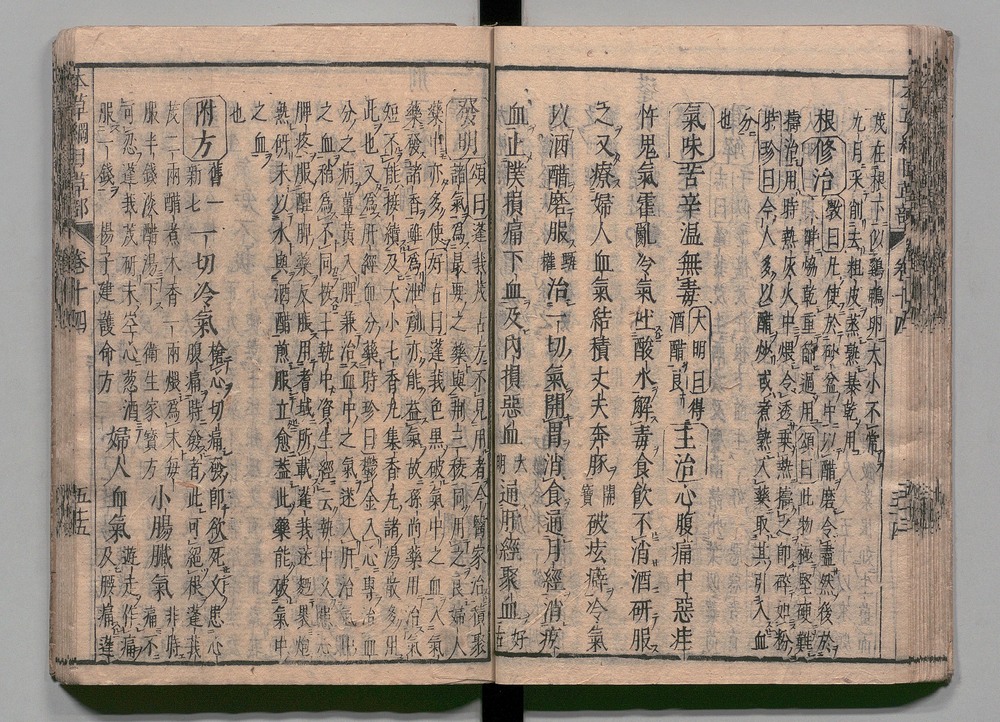 茂在根下似鷄鴨卵大小不常
九月采削去粗皮蒸熟暴乾用
根修治斅曰凡使於砂盆中以醋磨令盡然後於
火畔焙乾重篩過用頌曰此物極堅硬難
搗治用時熱灰火中煨令透乗熱搗之即碎如粉
時珍曰今人多以醋炒或煮熟入藥取其引入血
分也
氣味苦辛温無毒大明曰得酒醋良主治心腹痛中惡疰
忤鬼氣霍亂冷氣吐酸水解毒食飲不消酒研服
之又療婦人血氣結積丈夫奔豚開寶破痃癖冷氣
以酒醋磨服甄權治一切氣開胃消食通月經消瘀
血止撲損痛下血及内損惡血大明通肝經聚血好古
發明頌曰蓬莪茂古方不見用者今醫家治積聚
諸氣爲最要之藥與荆三稜同用之良婦人
藥中亦多使好古曰蓬莪色黒破氣中之血入氣
藥發諸香雖爲泄劑亦能益氣故孫尚藥用治氣
短不能接續及大小七香丸集香丸諸湯散多用
此也又爲肝經血分藥時珍曰鬱金入心專治血
分之病薑黄入脾兼治血中之氣蒁入肝治氣中
之血稍爲不同按王執中資生經云執中久患心
脾疼服醒脾藥反脹用耆域所載蓬莪蒁麪裹炮
熟研末以水與酒醋煎服立愈蓋此藥能破氣中
之血也
附方舊一新七一切冷氣搶心切痛發即欲死久患心
腹痛時發者此可絶根蓬莪
茂二兩醋煮木香一兩煨爲末毎
服半錢淡醋湯下衛生家寶方小腸臓氣非時痛不
可忍蓬莪茂研末空心葱酒
服一錢楊子建護命方婦人血氣遊走作痛及腰痛蓬
本草綱目草部 卷十四 五十五